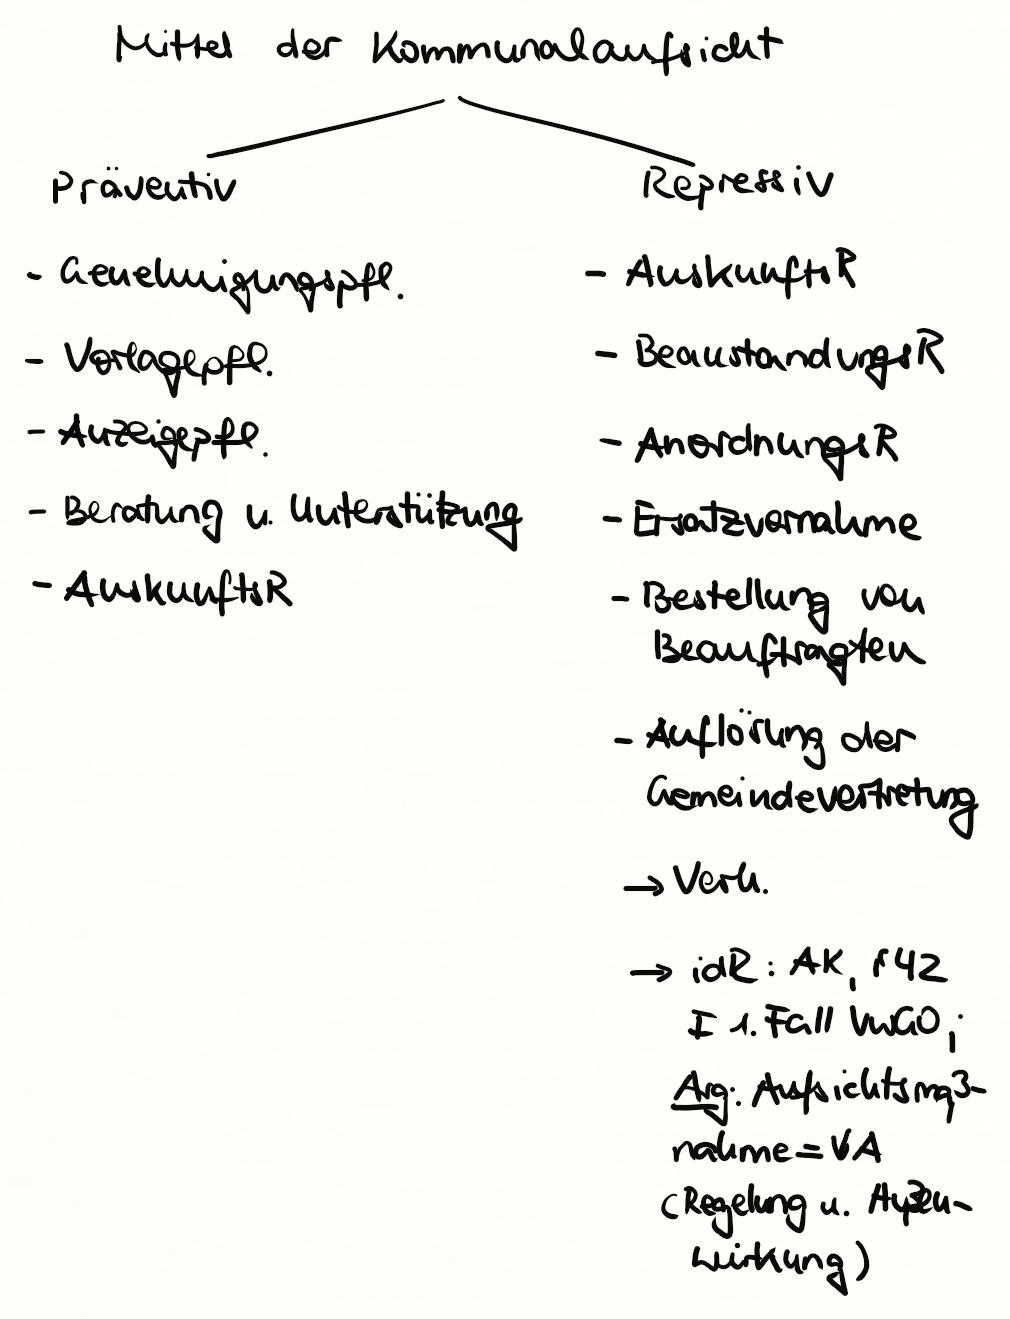 Mittel der Kommunalaufsicht
Präventiv
- Genehmigungspfl.
- Vorlagepfl.
- Anzeigepfl.
- Beratung u. Unterstützung
- AuskunftsR
Repressiv
- AuskunftsR
- BeanstandungsR
- AnordnungsR
- Ersatzvornahme
- Bestellung von
Beauftragten
- Auflösung der
Gemeindevertretung
→ Verh.
→ idR: AK, § 42
I 1. Fall VwGO;
Arg.: Aufsichtsmaß-
nahme = VA
(Regelung u. Außen-
wirkung)